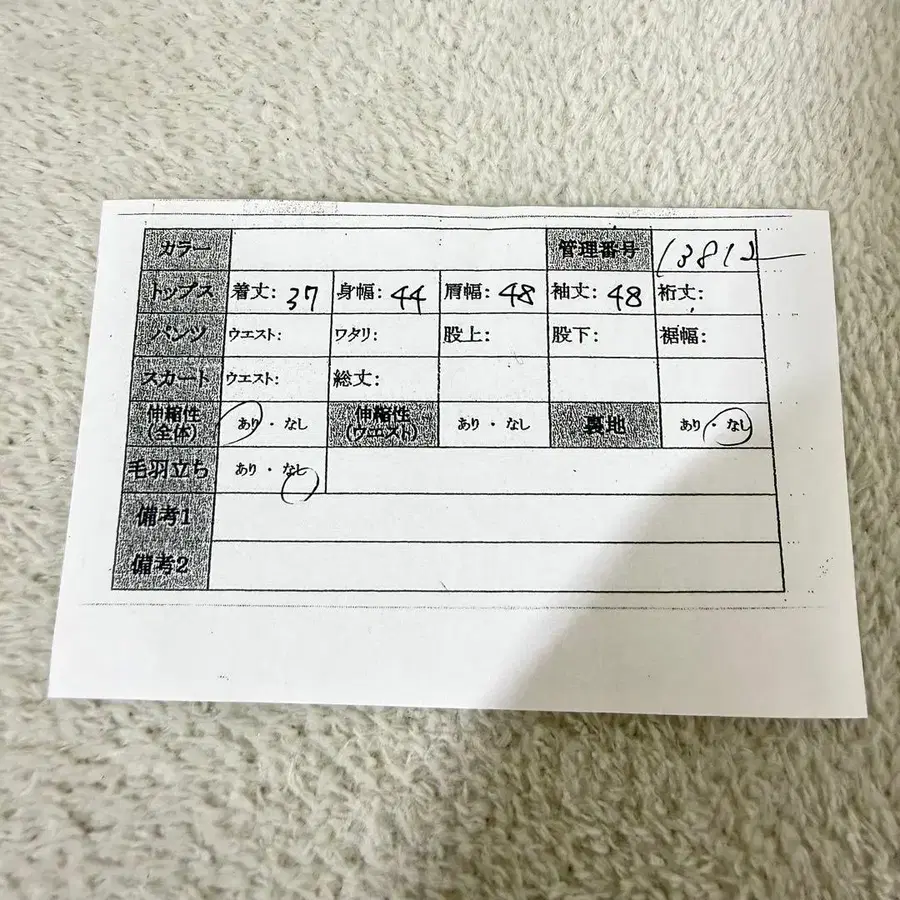 カラー 管理番号 13812
トップス 着丈: 37 身幅: 44 肩幅: 48 袖丈: 48 裄丈:
パンツ ウエスト: ワタリ: 股上: 股下: 裾幅:
スカート ウエスト: 総丈:
伸縮性 (全体) あり・なし 伸縮性 (ウエスト) あり・なし 裏地 あり・なし
毛羽立ち あり・なし
備考1
備考2